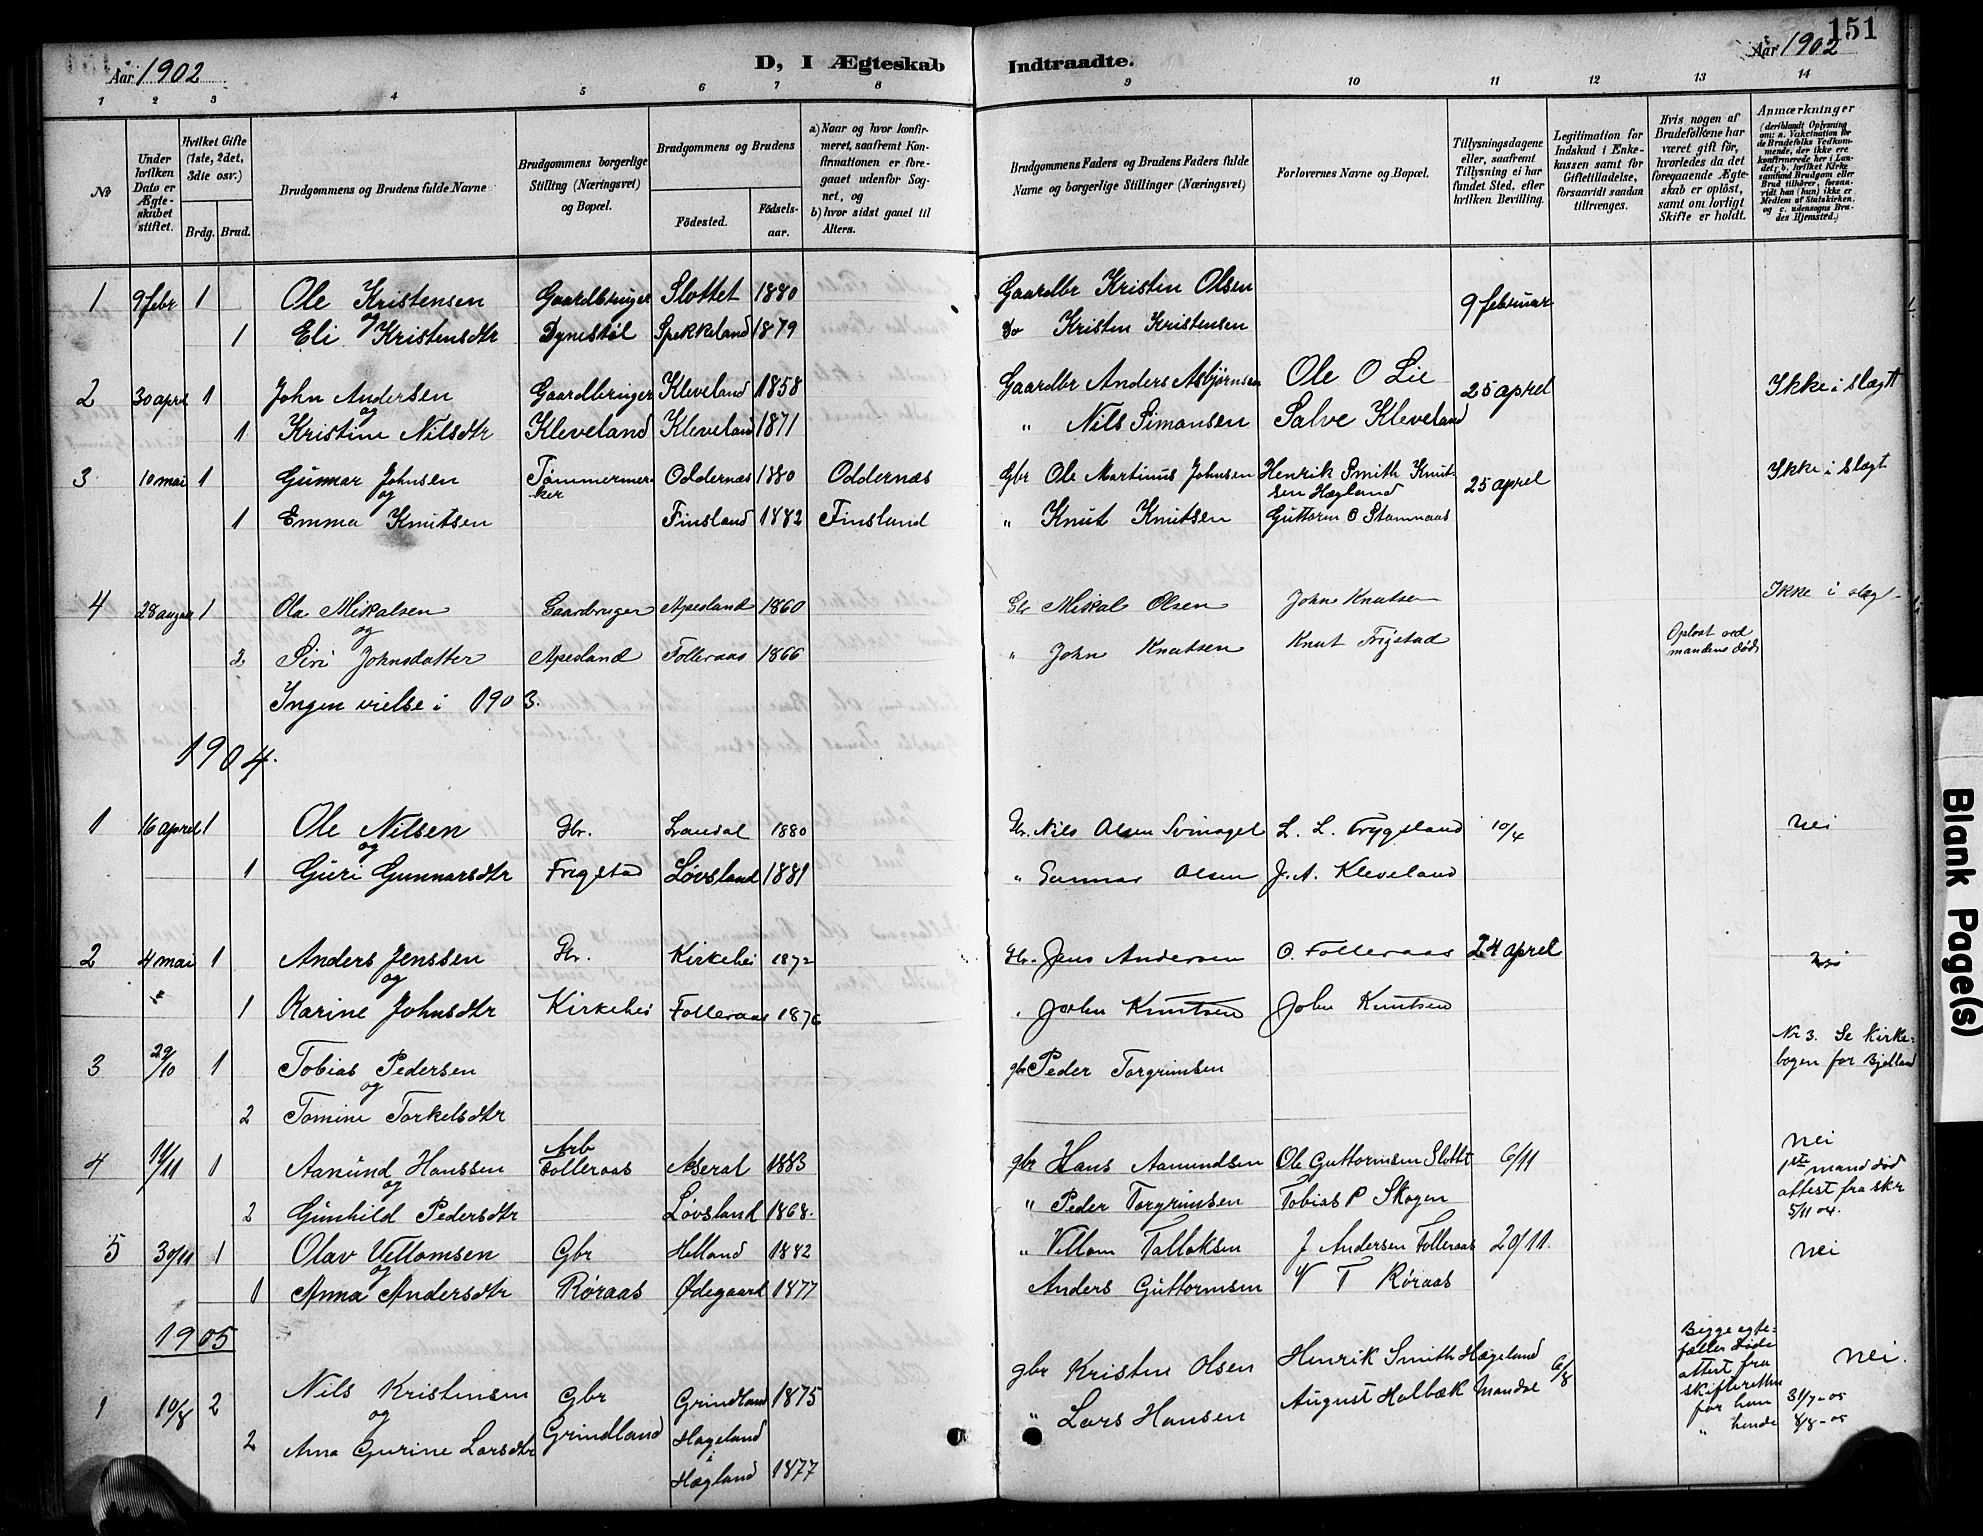 151
Aar 1902
D, I Ægteskab Indtraadte.
Aar 1902
1 2 3 4 5 6 7 8 9 10 11 12 13 14
No
Under hvilken Dato er Ægteskabet stiftet.
Hvilket Gifte (1ste, 2det, 3die osv.)
Brdg. Brud.
Brudgommens og Brudens fulde Navne
Brudgommens borgerlige Stilling (Næringsvei) og Bopæl.
Brudgommens og Brudens
Fødested.
Fødsels-aar.
a) Naar og hvor konfirmeret, saafremt Konfirmationen er foregaaet udenfor Sognet, og
b) hvor sidst gaaet til Alters.
Brudgommens Faders og Brudens Faders fulde Navne og borgerlige Stillinger (Næringsvei)
Forlovernes Navne og Bopæl.
Tillysningsdagene eller, saafremt Tillysning ei har fundet Sted, efter hvilken Bevilling.
Legitimation for Indskud i Enkekassen samt for Giftetilladelse, forsaavidt saadan tiltrænges.
Hvis nogen af Brudefolkene har været gift før, hvorledes da det foregaaende Ægteskab er opløst, samt om lovligt Skifte er holdt.
Anmærkninger
(deriblandt Oplysning om: a. Vaksination for de Brudefolks Vedkommende, der ikke ere konfirmerede her i Landet, b. hvilket Kirkesamfund Brudgom eller Brud tilhører, forsaavidt han (hun) ikke er Medlem af Statskirken, og c. udensogns Brudes Hjemsted.)
1 9 febr 1 Ole Kristensen Gaardbruger Slottet 1880 Gaardbr Kristen Olsen 9 februar
og
1 Eli Kristensdtr Dynestøl Spekkeland 1879 Do Kristen Kristensen
2 30 aprl 1 John Andersen Gaardbruger Kleveland 1858 Gaardbr Anders Asbjørnsen Ole O Lie 25 aprel Ikke i slægt
og
1 Kristine Nilsdtr Kleveland Kleveland 1871 " Nils Simonsen Salve Kleveland
3 10 mai 1 Gunnar Johnsen Tømmermerker Oddernæs 1880 Oddernæs Gbr Ole Martinus Johnsen Henrik Smith Knutsen Hægland 25 aprel Ikke i slægt
og
1 Emma Knutsen Finsland 1882 Finsland " Knut Knutsen Guttorm O Stamnaas
4 28 august 1 Ola Mikalsen Gaardbruger Apesland 1860 Gbr Mikal Olsen John Knutsen Ikke i slægt
og
2 Siri Johnsdatter Apesland Folleraas 1866 " John Knutsen Knut Frigstad Opløst ved mandens død
Ingen vielse i 1903.
1904.
1 16 aprel 1 Ole Nilsen Gbr. Laudal 1880 Gbr. Nils Olsen L. L. Trygsland 10/4 Nei
og
1 Guri Gunnarsdtr Frigstad Løvsland 1881 " Gunnar Olsen J. A. Kleveland
2 4 mai 1 Anders Jenssen Gbr. Kirkehei 1872 Gbr. Jens Andersen O. Folleraas 24 aprel nei
og
1 Karine Johnsdtr Kirkehei Folleraas 1876 John Knutsen John Knutsen
3 29/10 1 Tobias Pedersen gbr Peder Torgrimsen Nr 3. Se Kirkebogen for Bjelland
og
2 Tomine Torkelsdtr
4 14/11 1 Aanund Hanssen Arb Folleraas Aseral 1883 gbr Hans Aanundsen Ole Guttormsen Slottet 6/11 Nei
og
2 Gunhild Pedersdtr Løvsland 1868. " Peder Torgrimsen Tobias P Skogen 1ste mand død attest fra skr 5/11 04.
5 30/11 1 Olav Vellomsen Gbr Helland 1882 " Vellom Tallaksen J Andersen Folleraas 20/11. Nei
og
1 Anna Andersdtr Røraas Ødegaard 1877 Anders Guttormsen V T Røraas
1905
1 10/8 2 Nils Kristensen Gbr Grindland 1875 gbr Kristen Olsen Henrik Smith Hægeland 6/8 Begge egtefæller døde attest fra skifteretten for ham 31/7-05 Nei.
og
2 Ana Gurine Larsdtr Grindland Hageland i Hægland 1877 " Lars Hansen August Holbæk Mandal " hende 8/8-05
Blank Page(s)